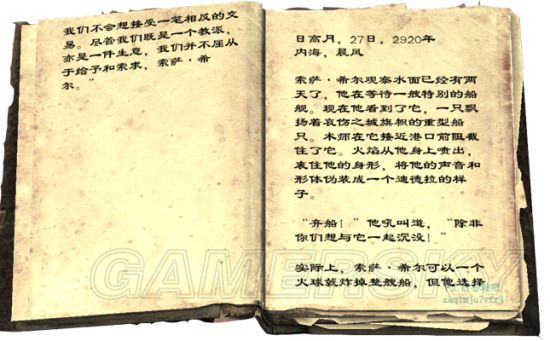 我们不会想接受一笔相反的交
易。尽管我们既是一个教派，
亦是一件生意，我们并不屈从
于给予和索求，索萨·希
尔。”
日高月，27日，2920年
内海，晨风
索萨·希尔观察水面已经有两
天了，他在等待一艘特别的船
舰。现在他看到了它，一只飘
扬着哀伤之城旗帜的重型船
只。术师在它接近港口前阻截
住了它。火焰从他身上喷出，
裹住他的身形，将他的声音和
形体伪装成一个迪德拉的样
子。
“弃船！”他吼叫道，“除非
你们想与它一起沉没！”
实际上，索萨·希尔可以一个
火球就炸掉整艘船，但他选择
GAMERSKY